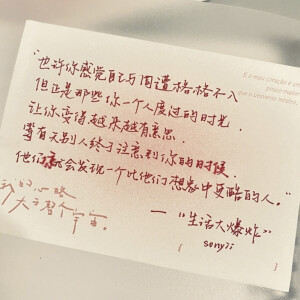 “也许你感觉自己与周遭格格不入
但正是那些你一个人度过的时光，
让你变得越来越有意思，
等有天别人终于注意到你的时候，
他们就会发现一个比他们想象中更酷的人。”
— “生活大爆炸”